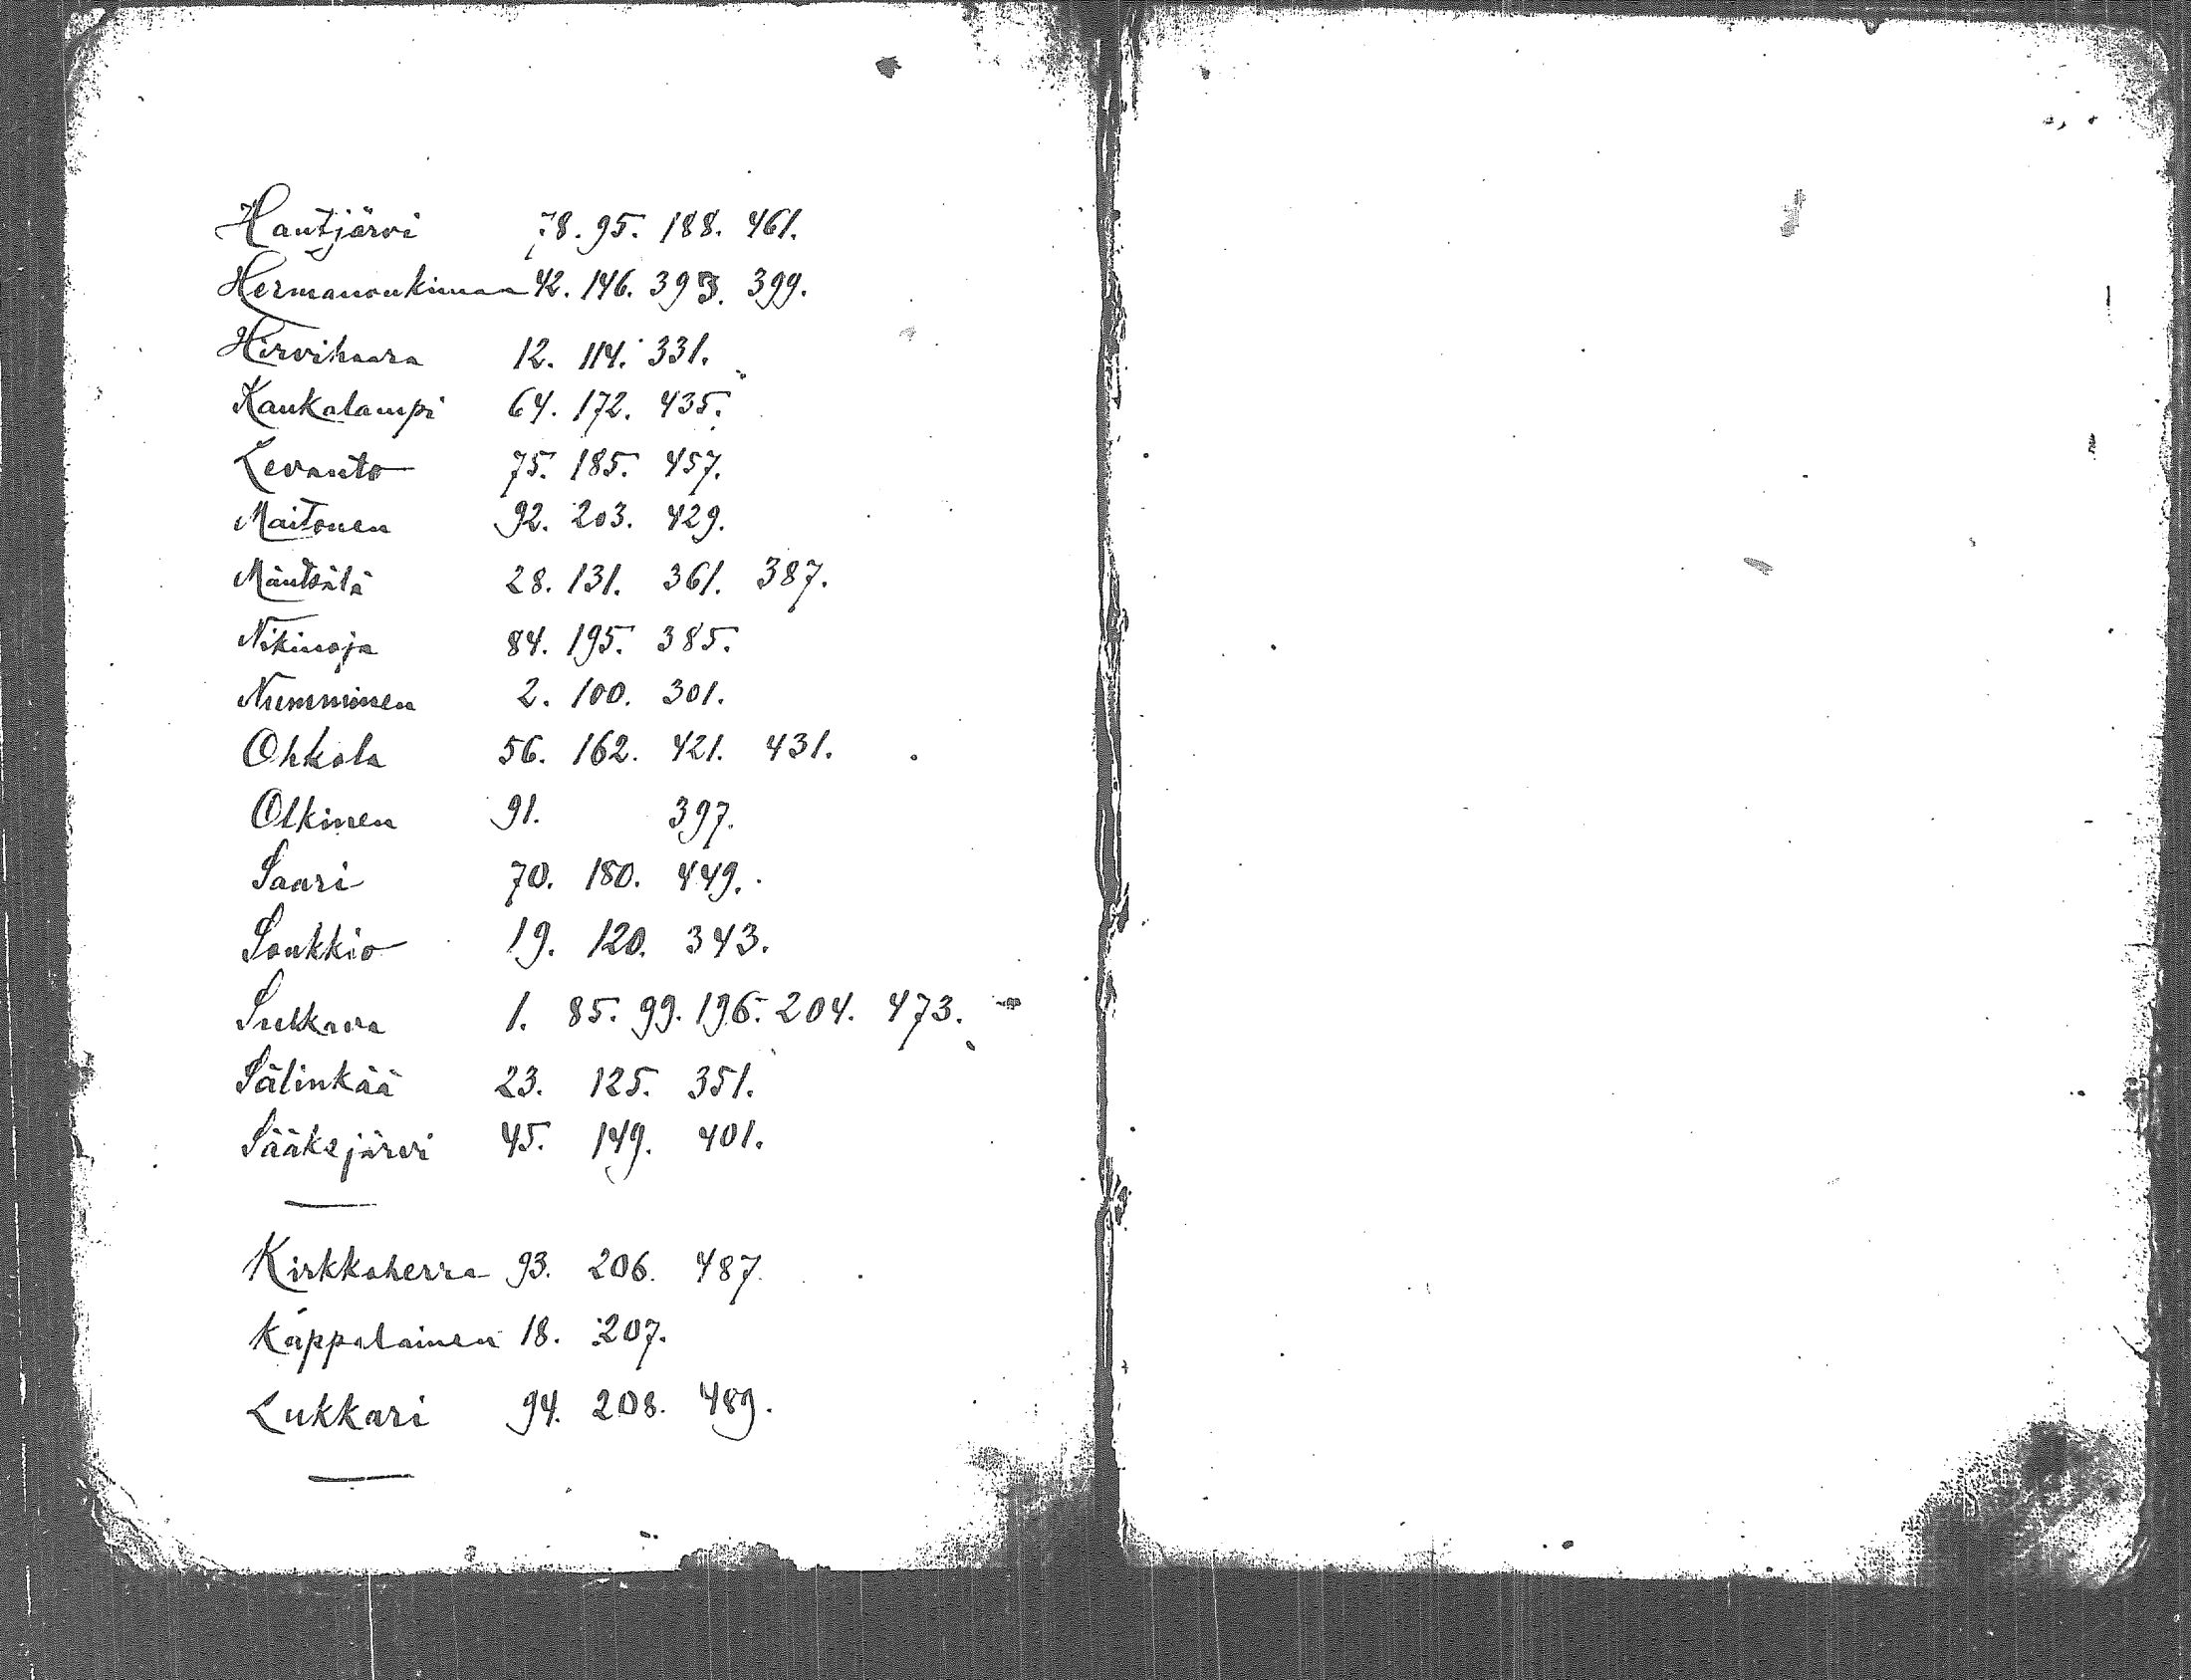 Hautjärvi 78. 95. 188. 461.
Hermanonkimaa 42. 146. 393. 399.
Hirvihaara 12. 114. 331.
Kaukalampi 64. 172. 435.
Levanto 75. 185. 457.
Maitonen 92. 203. 429.
Mäntsälä 28. 131. 361. 387.
Nikinoja 84. 195. 385.
Numminen 2. 100. 301.
Ohkola 56. 162. 421. 431.
Olkinen 91. 397.
Saari 70. 180. 449.
Soukkio 19. 120. 343.
Sulkava 1. 85. 99. 196. 204. 473.
Sälinkää 23. 125. 351.
Sääksjärvi 45. 149. 401.
Kirkkoherra 93. 206. 487.
Kappalainen 18. 207.
Lukkari 94. 208. 489.